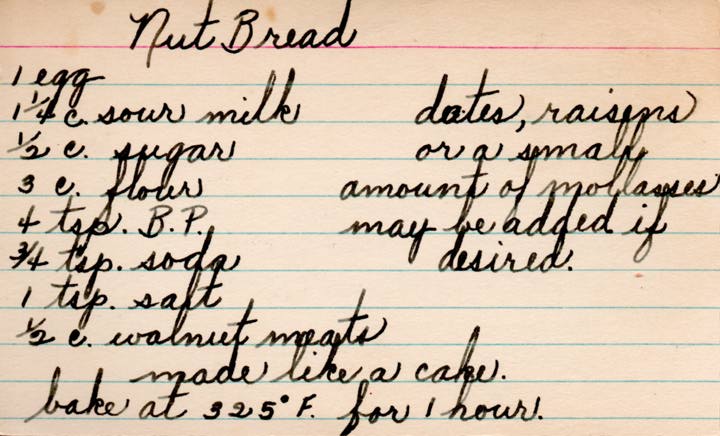 Nut Bread
1 egg
1 1/4 c. sour milk
1/2 c. sugar
3 c. flour
4 tsp. B.P.
3/4 tsp. soda
1 tsp. salt
1/2 c. walnut meats
dates, raisens
or a small
amount of mollasses
may be added if
desired.
made like a cake.
bake at 325° F. for 1 hour.